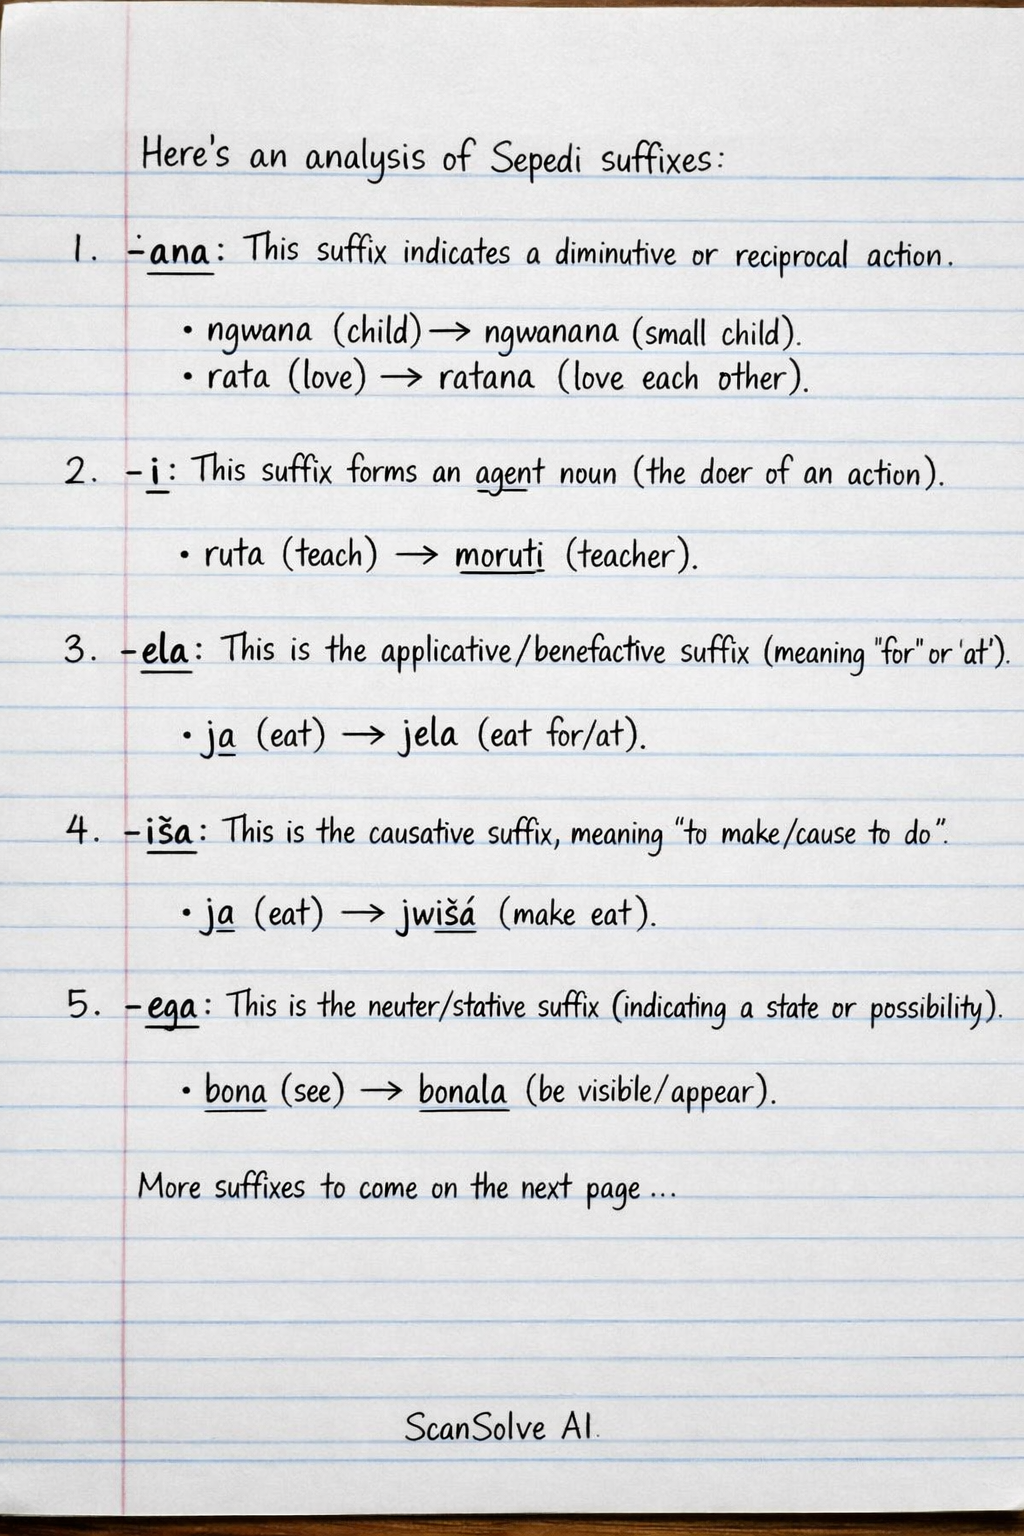 Here's an analysis of Sepedi suffixes:
1. -ana: This suffix indicates a diminutive or reciprocal action.
• ngwana (child) → ngwanana (small child).
• rata (love) → ratana (love each other).
2. -i: This suffix forms an agent noun (the doer of an action).
• ruta (teach) → moruti (teacher).
3. -ela: This is the applicative/benefactive suffix (meaning "for" or 'at').
• ja (eat) → jela (eat for/at).
4. -iša: This is the causative suffix, meaning "to make/cause to do".
• ja (eat) → jwišá (make eat).
5. -ega: This is the neuter/stative suffix (indicating a state or possibility).
• bona (see) → bonala (be visible/appear).
More suffixes to come on the next page ...
ScanSolve AI.